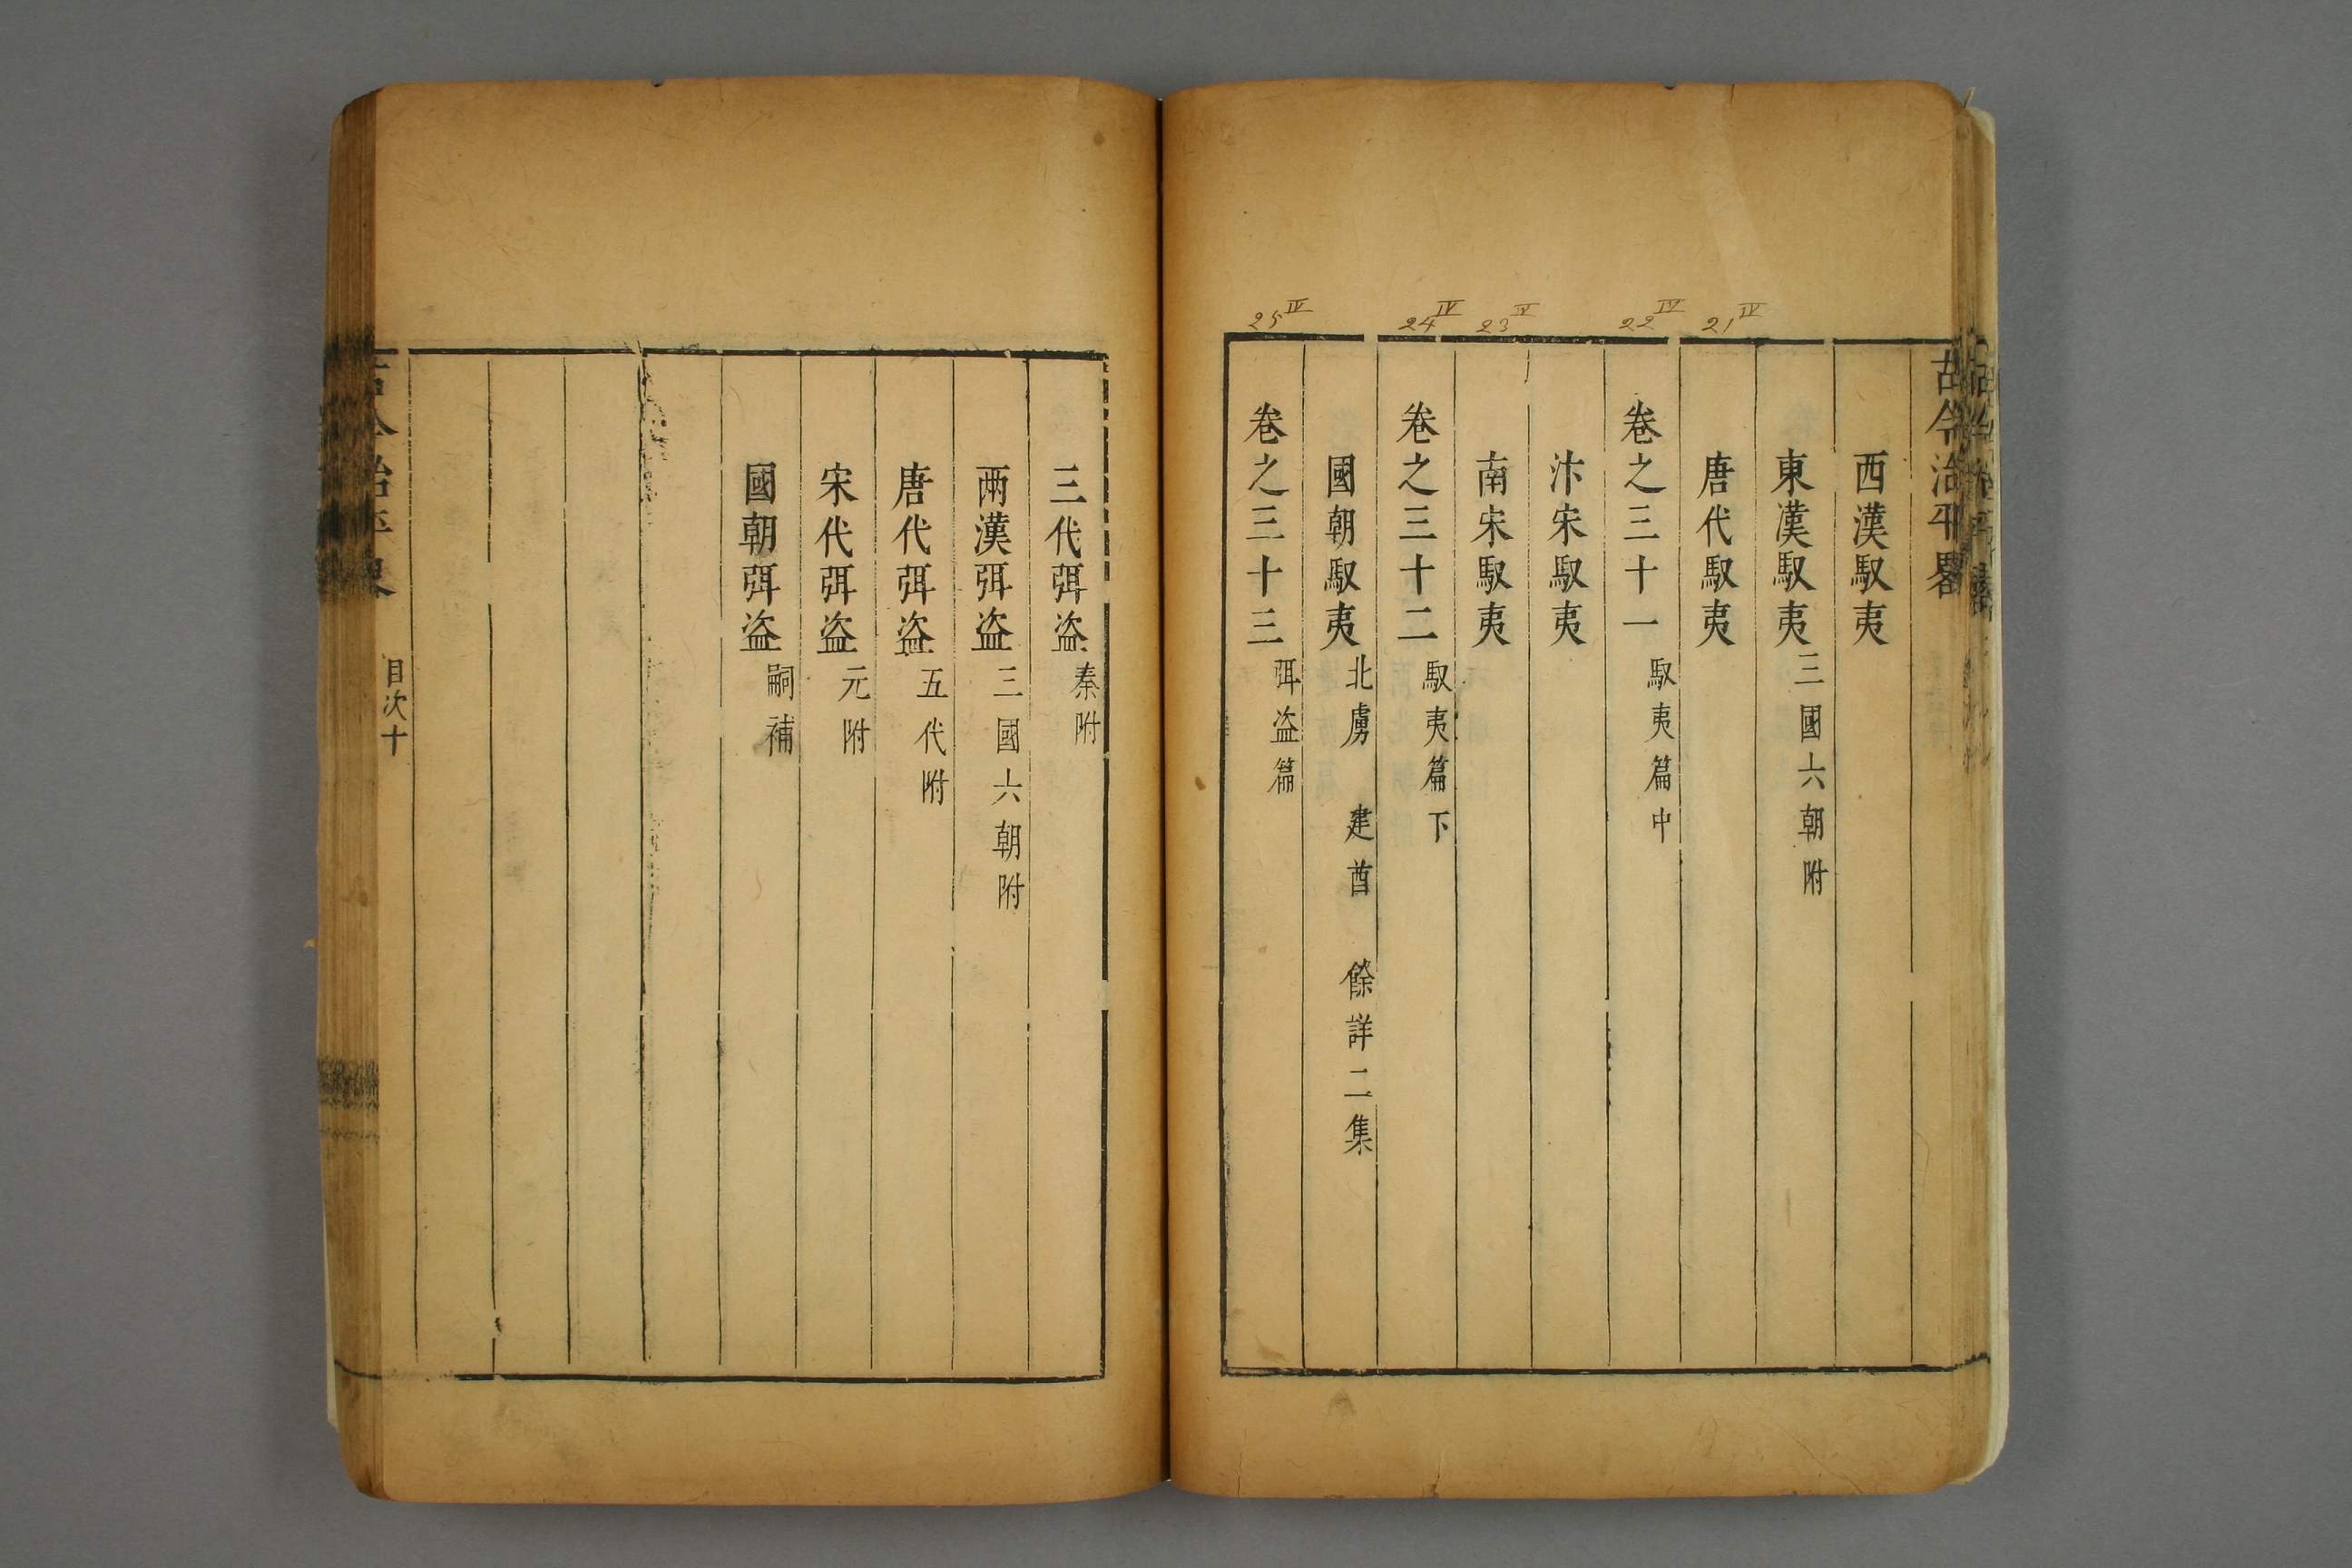 古今治平畧
西漢馭夷
東漢馭夷 三國六朝附
唐代馭夷
卷之三十一 馭夷篇中
汴宋馭夷
南宋馭夷
卷之三十二 馭夷篇下
國朝馭夷 北虜 建酋 餘詳二集
卷之三十三 弭盜篇
25 IV
24 IV
23 IV
22 IV
21 IV
三代弭盗 秦附
兩漢弭盗 三國六朝附
唐代弭盗 五代附
宋代弭盗 元附
國朝弭盗 嗣補
目次十